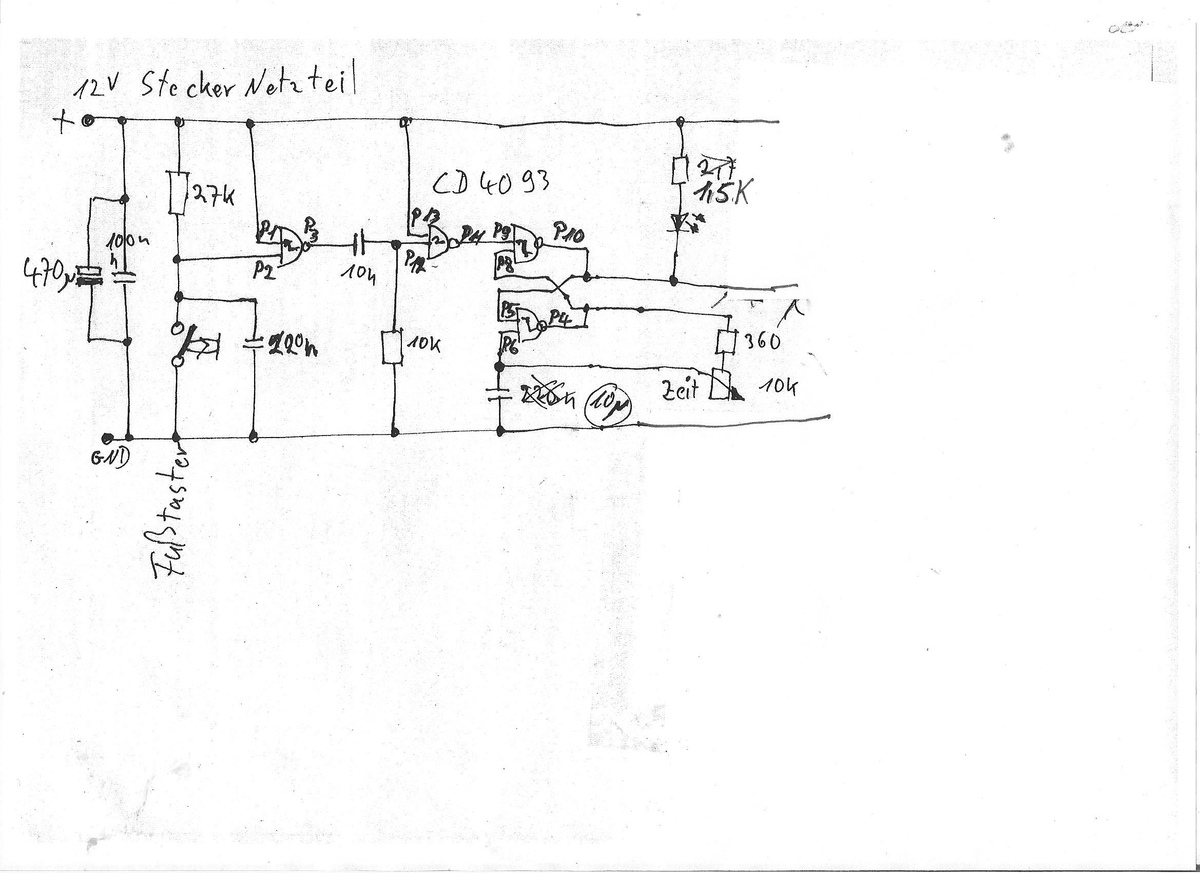 12V Stecker Netzteil
+
27K
CD 4093
1,5K
P1
P3
P2
P13
P12
P11
P9
P8
P10
100n
470µ
10n
P5
P4
P6
220n
10K
360
Zeit
10k
10µ
GND
Fußtaster